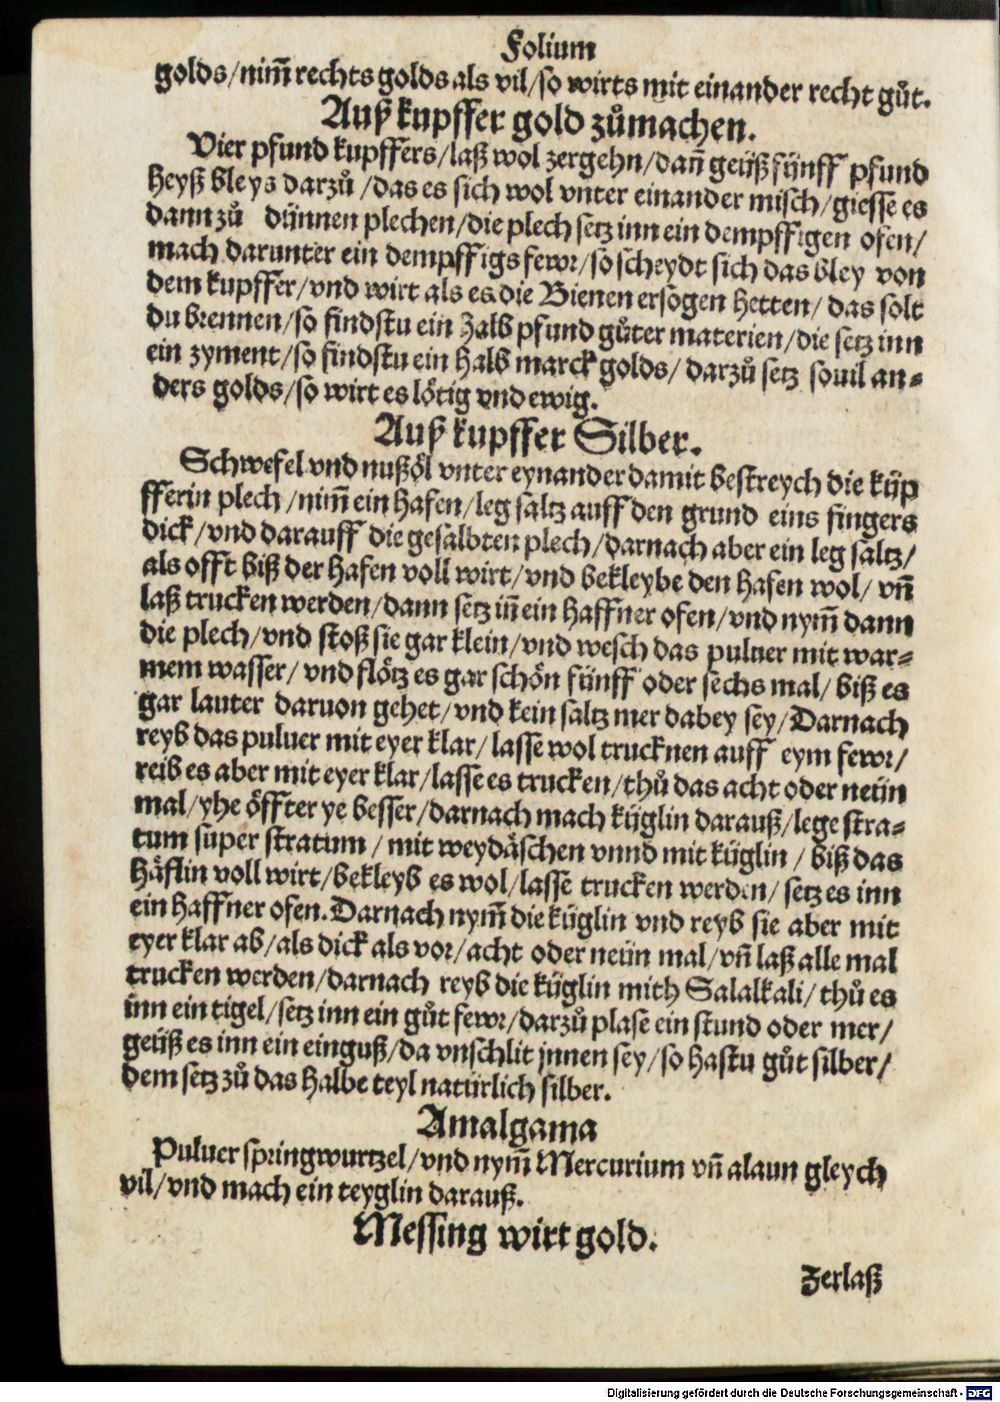 Folium
golds/nim̃ rechts golds als vil/so wirts mit einander recht gůt.
Auß kupffer gold zůmachen.
Vier pfund kupffers/laß wol zergehn/dañ geüß fünff pfund
heyß bleys darzů/das es sich wol vnter einander misch/giesse es
dann zů dünnen plechen/die plech setz inn ein dempffigen ofen/
mach darunter ein dempffigs fewr/so scheydt sich das bley von
dem kupffer/vnd wirt als es die Bienen ersogen hetten/das solt
du brennen/so findstu ein halb pfund gůter materien/die setz inn
ein zyment/so findstu ein halb marck golds/darzů setz souil an⸗
ders golds/so wirt es lötig vnd ewig.
Auß kupffer Silber.
Schwefel vnd nußöl vnter eynander damit bestreych die küp
fferin plech/nim̃ ein hafen/leg saltz auff den grund eins fingers
dick/vnd darauff die gesalbten plech/darnach aber ein leg saltz/
als offt biß der hafen voll wirt/vnd bekleybe den hafen wol/vñ
laß trucken werden/dann setz iñ ein haffner ofen/vnd nym̃ dann
die plech/vnd stoß sie gar klein/vnd wesch das puluer mit war⸗
mem wasser/vnd flötz es gar schön fünff oder sechs mal/biß es
gar lauter daruon gehet/vnd kein saltz mer dabey sey/Darnach
reyb das puluer mit eyer klar/lasse wol trucknen auff eym fewr/
reib es aber mit eyer klar/lasse es trucken/thů das acht oder neün
mal/yhe öffter ye besser/darnach mach küglin darauß/lege stra⸗
tum super stratum/mit weydäschen vnnd mit küglin/biß das
häflin voll wirt/bekleyb es wol/lasse trucken werden/setz es inn
ein haffner ofen. Darnach nym̃ die küglin vnd reyb sie aber mit
eyer klar ab/als dick als vor/acht oder neün mal/vñ laß alle mal
trucken werden/darnach reyb die küglin mith Salalkali/thů es
inn ein tigel/setz inn ein gůt fewr/darzů plase ein stund oder mer/
geüß es inn ein einguß/da vnschlit jnnen sey/so hastu gůt silber/
dem setz zů das halbe teyl natürlich silber.
Amalgama
Puluer springwurtzel/vnd nym̃ Mercurium vñ alaun gleych
vil/vnd mach ein teyglin darauß.
Messing wirt gold.
Zerlaß
Digitalisierung gefördert durch die Deutsche Forschungsgemeinschaft - DFG